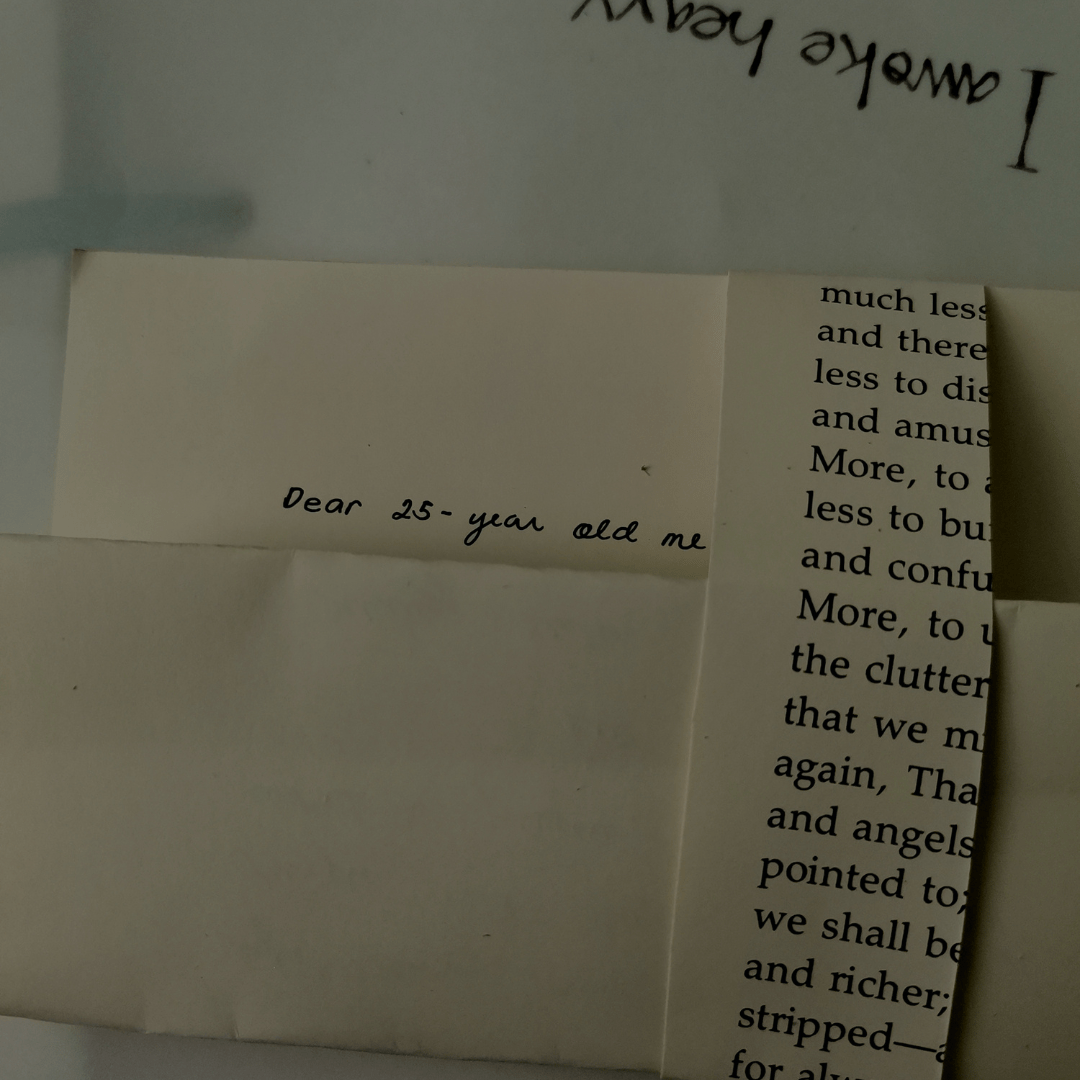 I awoke heavy
Dear 25-year old me
much less
and there
less to dis
and amus
More, to
less to bu
and confu
More, to u
the clutter
that we m
again, Tha
and angels
pointed to;
we shall be
and richer;
stripped—a
for alw